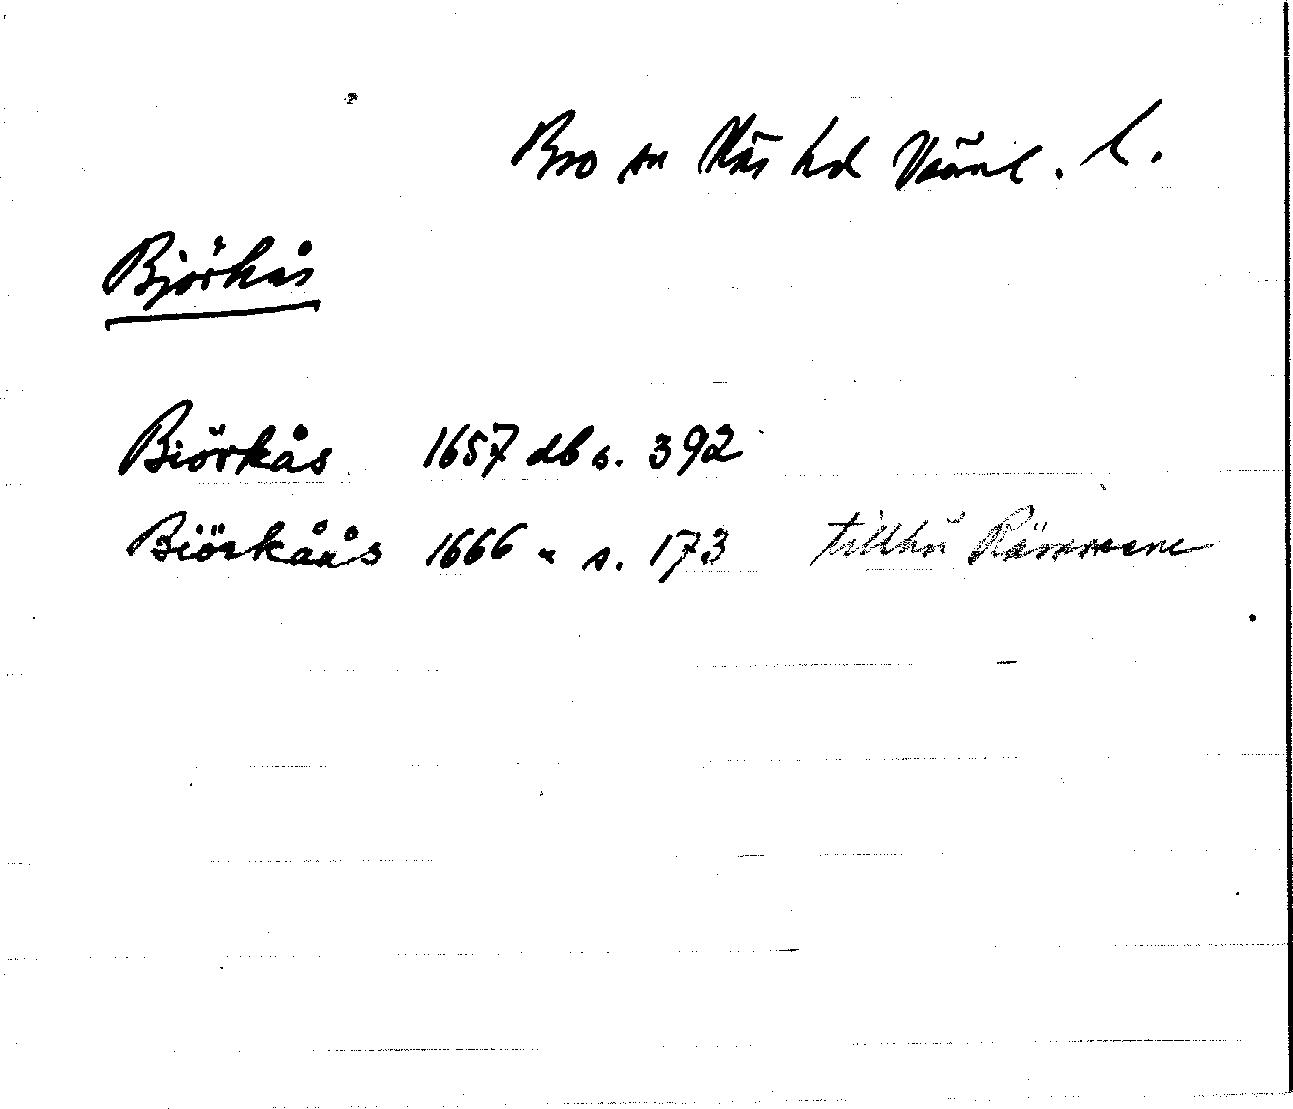 Bro sn Näs hd Värml. l.
Björkås
Biörkås 1657 db s. 392
Biörkåås 1666 " s. 173 tillhör Rämmene